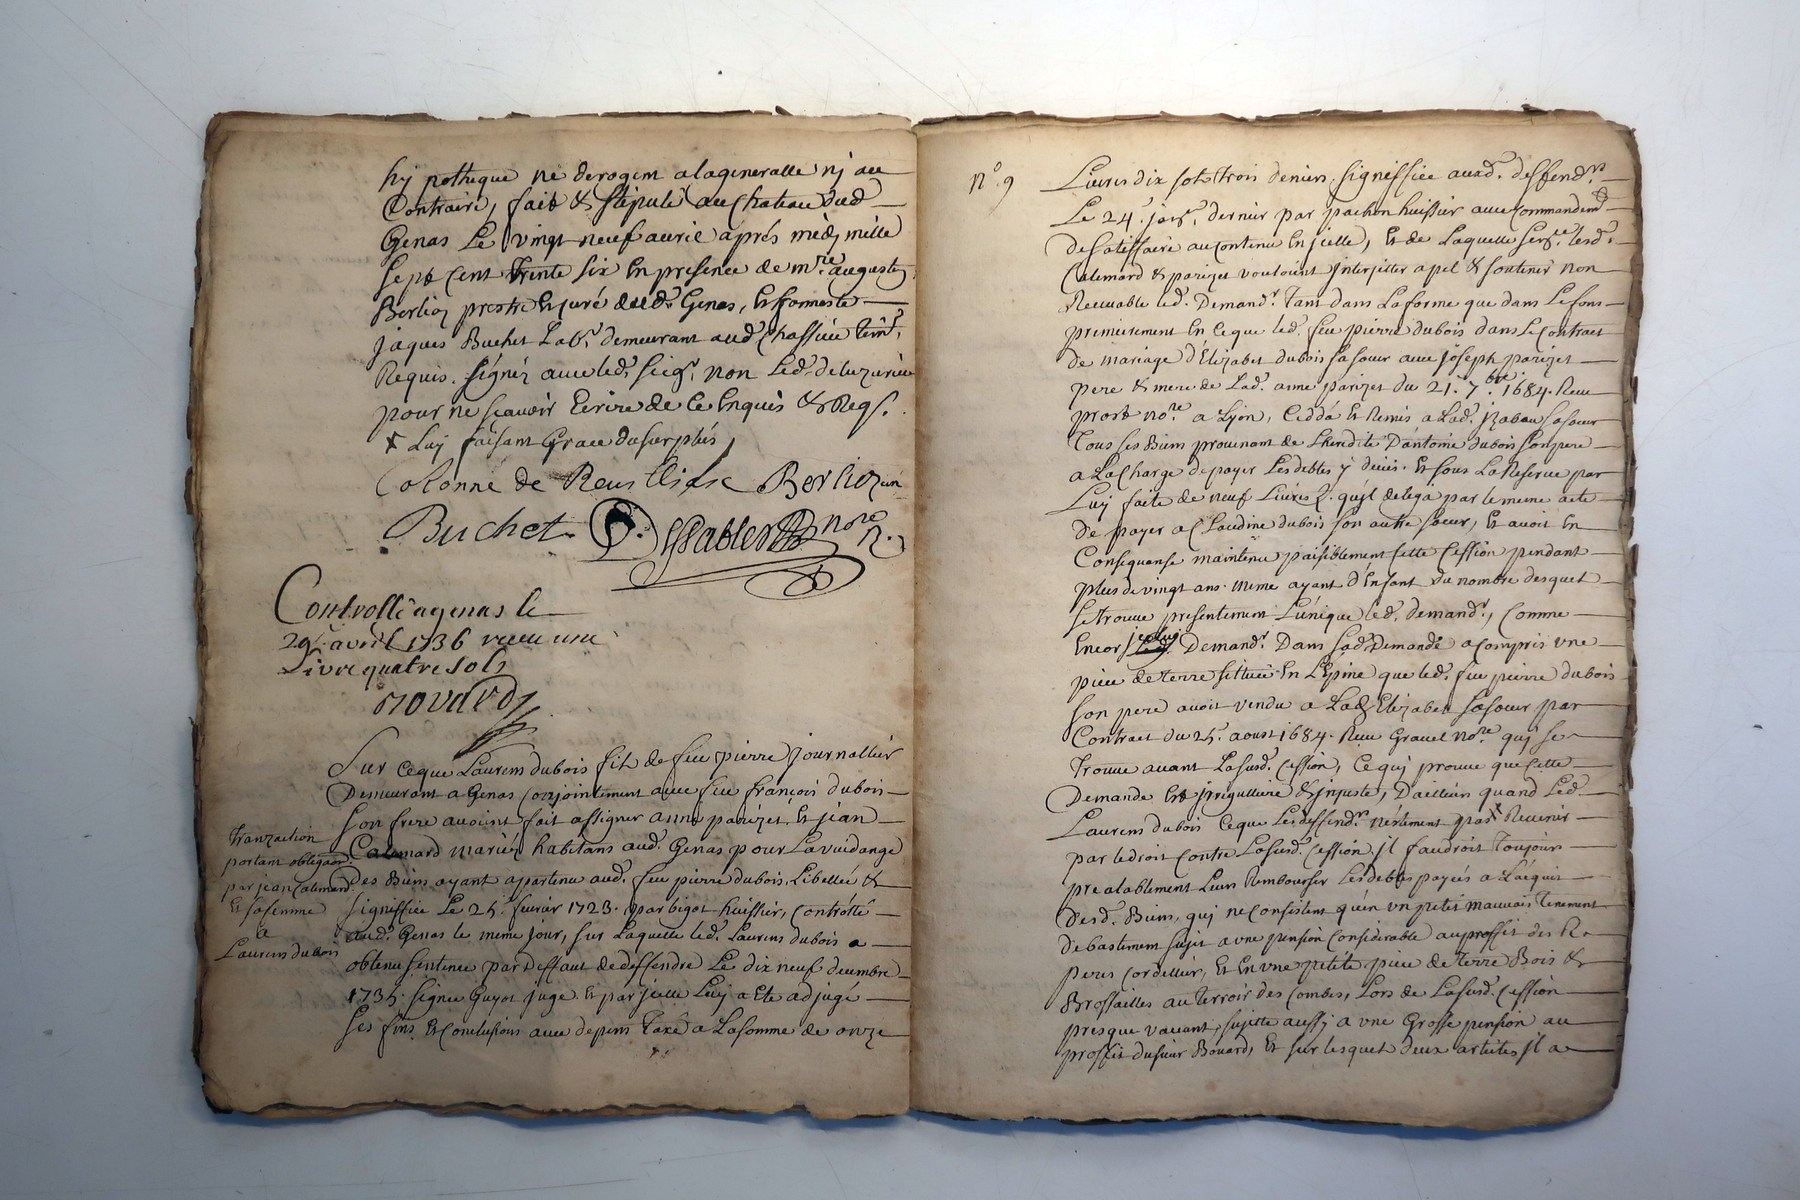 hÿpotheque ne derogeni alageneralle nj au
Contraire, fait & stipulé au Chateau dud.
Genas Le vingt neuf auril aprés midy mille
sept cent trente six En presence de m.re augustin
Berlioz prestre Et curé dud. Genas, Et
jaques Buchet Lab.r demeurant aud. Chassieu temt.
Requis. signéz auec led. sieg.r non Led.
pour ne sçauoir Ecrire de Ce Enquis & Reqs.
x Luy faisant Grace du surplus
Colonne de Berlioz
Buchet. Sablet no.re R.
Controllé a genas le
29.e avril 1736 receu une
Livre quatre sols
Novard
Sur Ceque Laurens dubois fils de feu pierre journallier
Demeurant a Genas Conjointement auec feu françois dubois
son frere auoient fait assigner anne parizet Et jean
Calemard mariés habitans aud. Genas pour La vuidange
des Biens ayant apartenu aud. feu pierre dubois, Libellée &
signiffiée Le 25. feurier 1723. par bigot huissier, Contrôllé
aud. Genas le meme jour, sur Laquelle led. Laurens dubois a
obtenu sentence par deffaut de deffendre Le dix neuf decembre
1735. signée Guyot juge Et par jcelle Luy a Eté adjugé
ses fins Et Conclusions auec depens Taxé a La somme de onze
Tranzaction
portant obligaon.
par jean Calemard
Et sa femme
a
Laurens dubois
n.o 9
Liures dix sols trois deniers, signiffiée auxd. deffend.rs
Le 24. jer. dernier par pachon huissier auec Commandemt.
de satisfaire au Contenu En jcelle, Et de Laquelle sent.ce lesd.
Calemard & parizet vouloient jnterjetter apel & soutenir non
Receuable led. Demand.r Tant dans La forme que dans Le fons
premierement En Ceque led. feu pierre dubois dans Le Contract
de mariage d'Elizabet dubois sa sœur auec joseph parizet
pere & mere de Lad. anne parizet du 21. 7.bre 1684. Receu
prost no.re a Lyon, Cedda Et Remis a Lad. jzabau sa sœur
Tous ses Biens prouenant de L'heredité D'antoine dubois son pere
a La Charge de payer Les debtes y deües. Et sous La Reserue par
Luy faite de neuf Liures qu'jl delega par le meme acte
de payer a Claudine dubois son autre sœur, Et auoit En
Consequanse maintenu paisiblement Cette Cession pendant
plus de vingt ans meme ayant d'Enfant du nombre desquels
se trouue presentement L'unique led. demand.r, Comme
Encor jceluy Demand.r Dans sad. Demande a Compris vne
piece de Terre sittuée En L'Epine que led. feu pierre dubois
son pere auoit vendu a Lad. Elizabet sa sœur par
Contract du 25. aoust 1684. Receu Grauel no.re quj se
Trouue auant La susd. Cession, Ce quj prouue que Cette
Demande Est jrregulliere & jnjuste, D'ailleurs quand Led.
Laurens dubois Ceque Les deffend.rs n'estiment pas x Reuenir
par le droit Contre La susd. Cession, jl faudroit Toujours
prealablement Leurs Rembourser Les debtes payées a L'acquit
Desd. Biens, quj ne Consistent qu'en vn petit mauuais Tenement
de bastiment sujet a vne pension Considerable au proffit des R.
peres Cordellier, Et En vne petite piece de Terre Bois &
Brossailles au Terroir des Combes, Lors de La susd. Cession
presque vaccant, sujette aussj a vne Grosse pension au
proffit du sieur Bouard, Et sur lesquels deux articles jl a